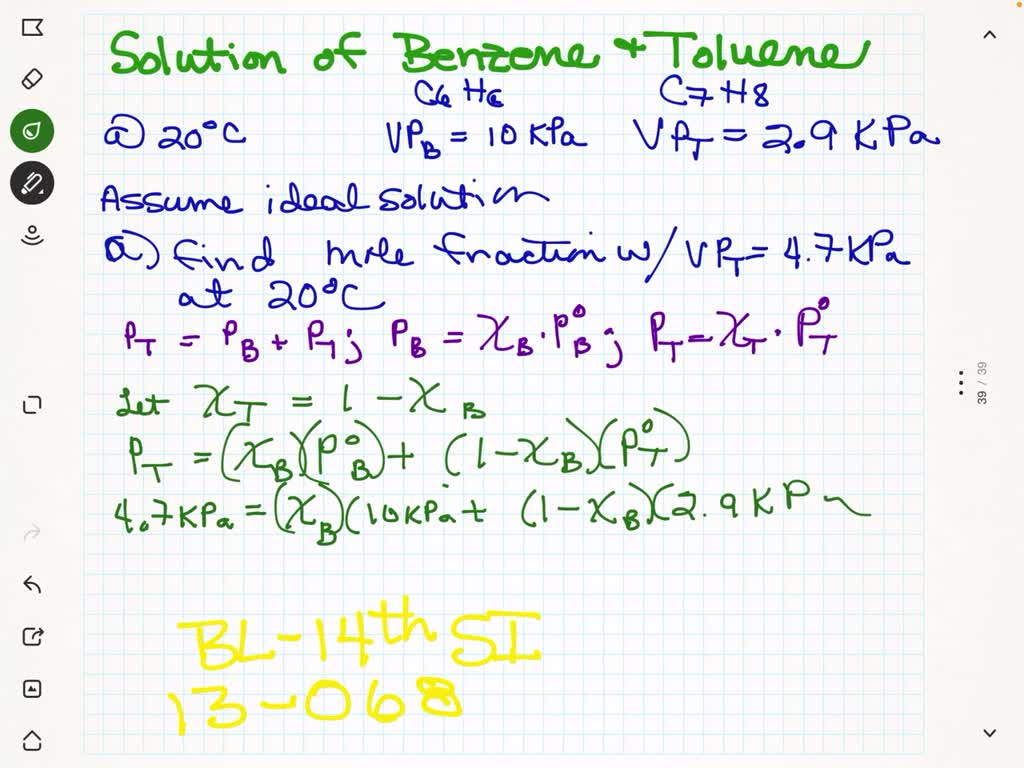 Solution of Benzene + Toluene
C6H6 C7H8
@ 20°C VP_B = 10 KPa VP_T = 2.9 KPa
Assume ideal solution
a) find mole fraction w/ VP_T = 4.7 KPa
at 20°C
P_T = P_B + P_T; P_B = X_B · P°_B; P_T = X_T · P°_T
Let X_T = 1 - X_B
P_T = (X_B)(P°_B) + (1-X_B)(P°_T)
4.7 KPa = (X_B)(10 KPa + (1-X_B)(2.9 KPa
BL-14th SI
13-068
39 / 39